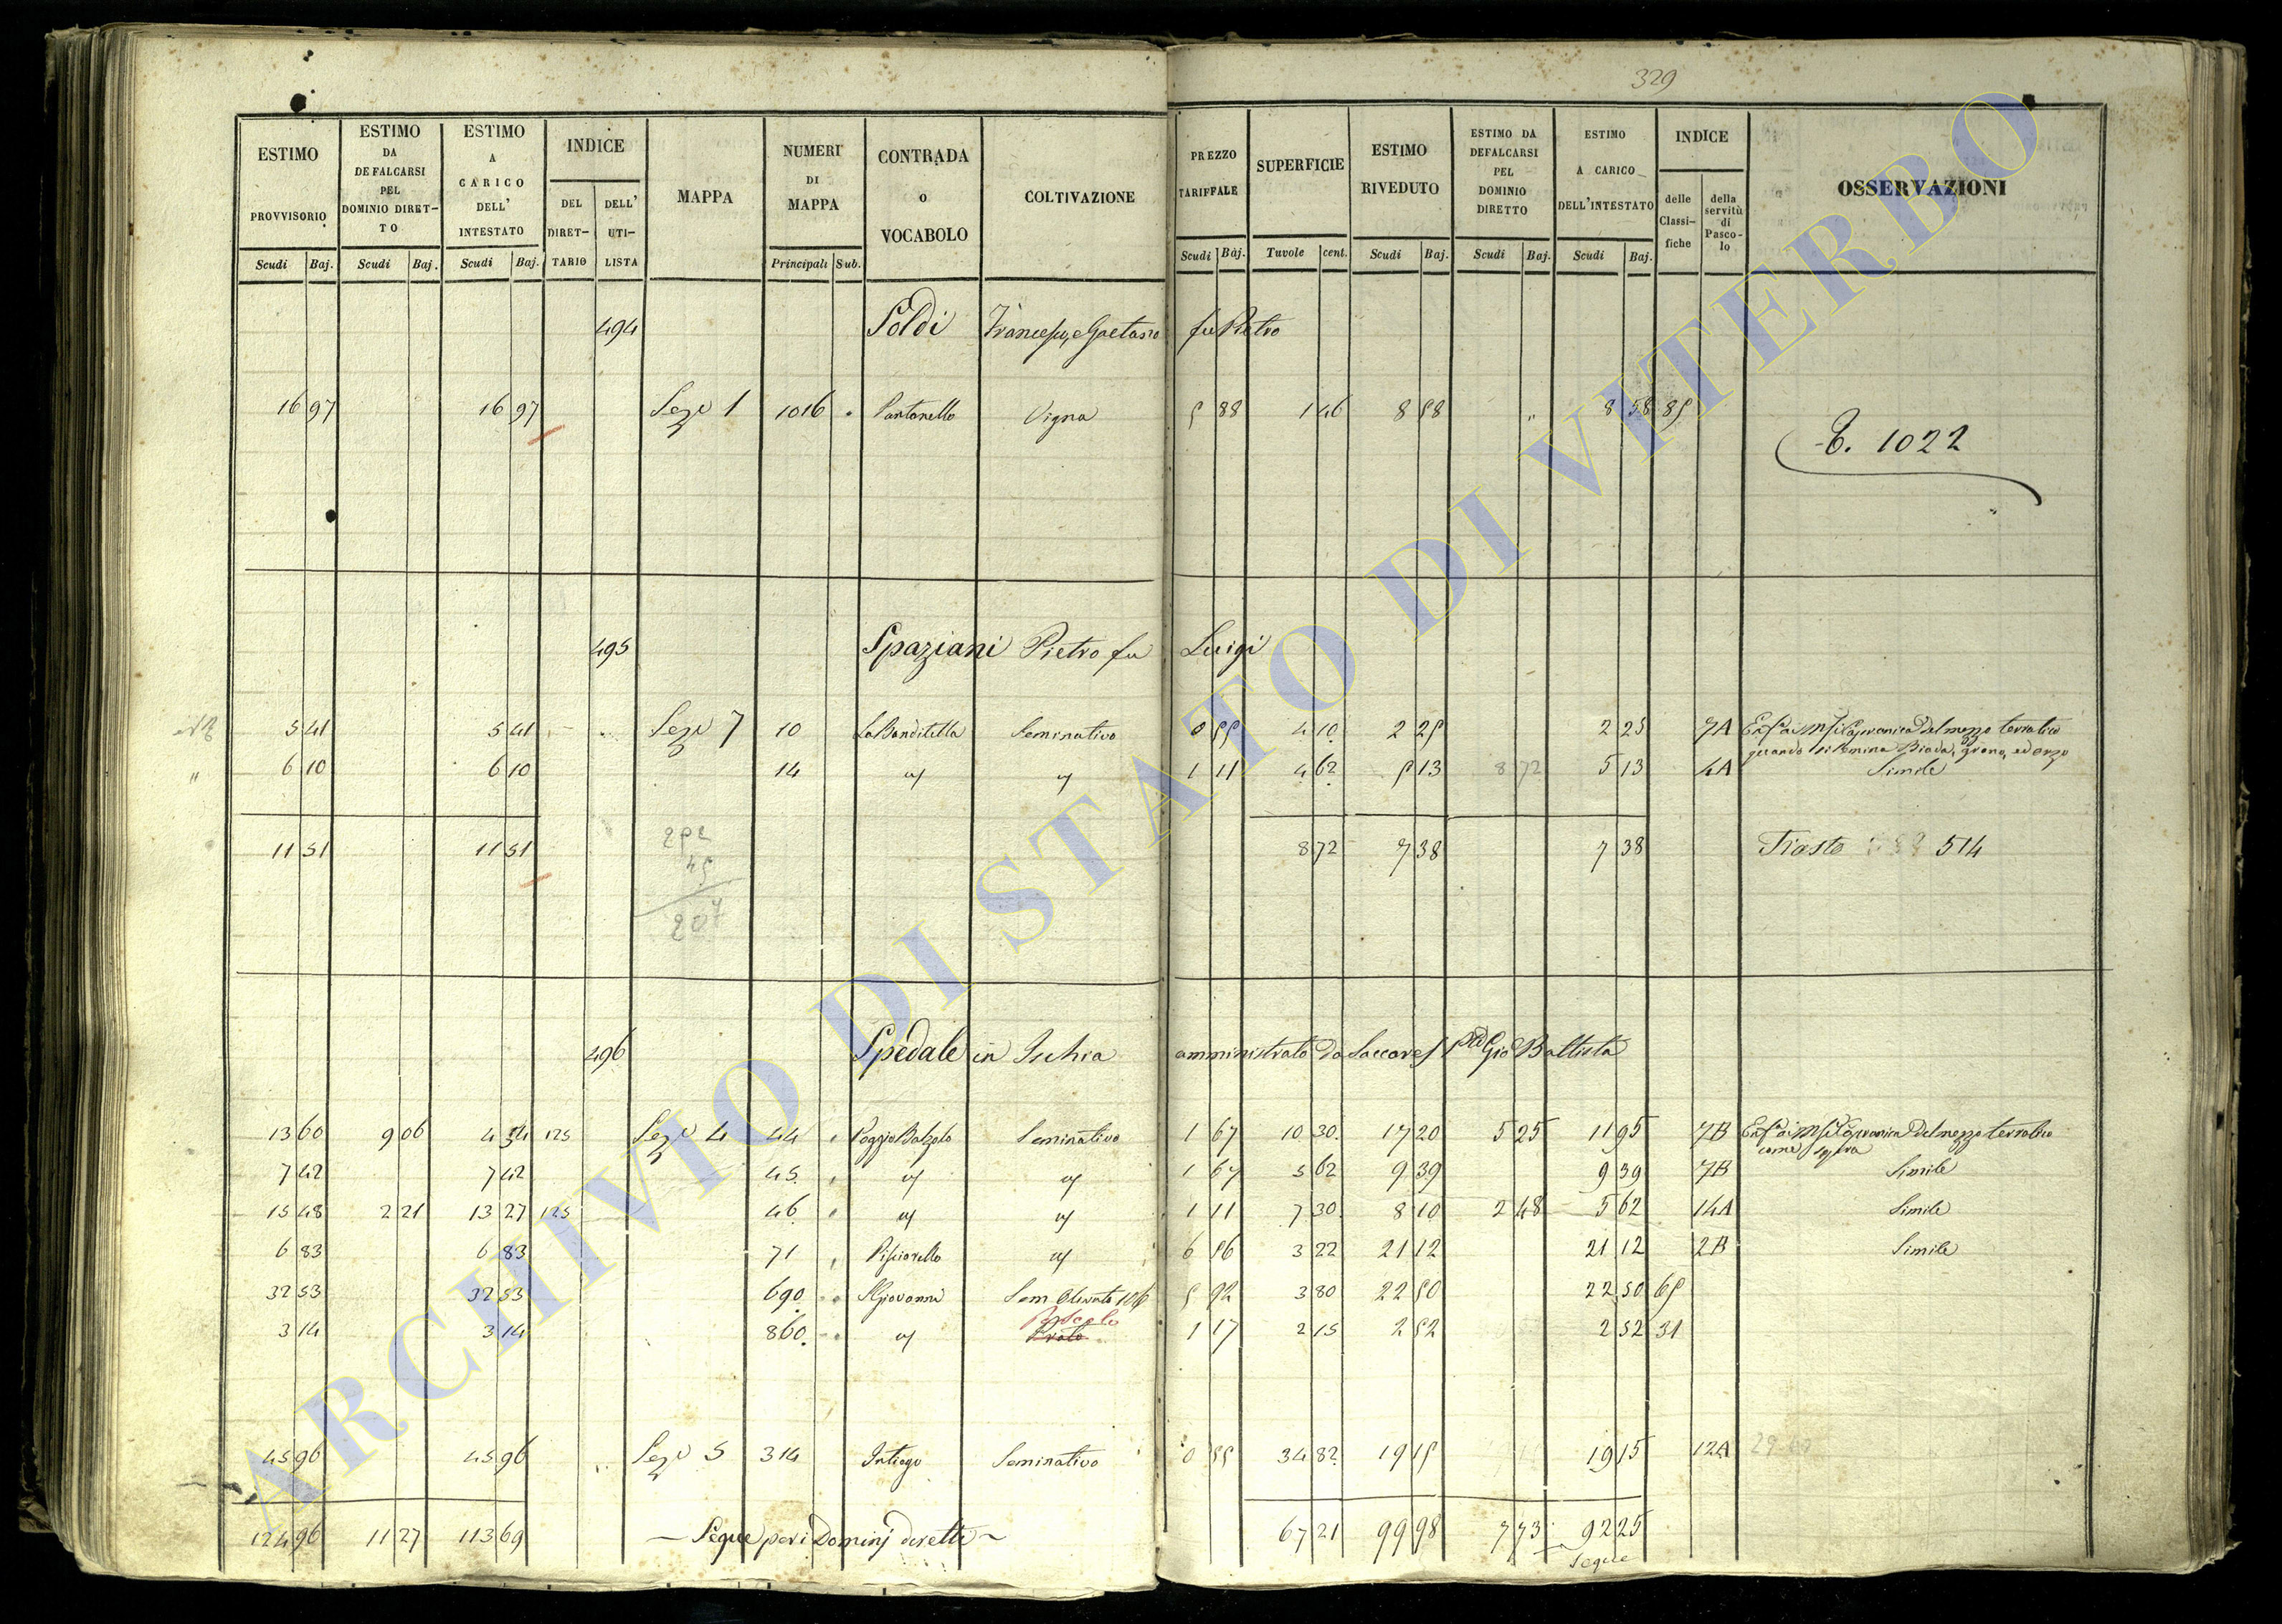 329
ESTIMO PROVVISORIO Scudi Baj.
ESTIMO DA DEFALCARSI PEL DOMINIO DIRET-TO Scudi Baj.
ESTIMO A CARICO DELL' INTESTATO Scudi Baj.
INDICE DEL DIRET-TARIO DELL' UTI-LISTA
MAPPA
NUMERI DI MAPPA Principali Sub.
CONTRADA o VOCABOLO
COLTIVAZIONE
PREZZO TARIFFALE Scudi Baj.
SUPERFICIE Tavole cent.
ESTIMO RIVEDUTO Scudi Baj.
ESTIMO DA DEFALCARSI PEL DOMINIO DIRETTO Scudi Baj.
ESTIMO A CARICO DELL'INTESTATO Scudi Baj.
INDICE delle Classi-fiche della servitù di Pasco-lo
OSSERVAZIONI
494 Soldi Francesco, e Gaetano fu Pietro
16 97 16 97 Seze 1 1016 Pantanello Vigna 5 88 1 46 8 58 " 8 58 85
E. 1022
495 Spaziani Pietro fu Luigi
5 41 5 41 Seze 7 10 La Banditella Seminativo 0 55 4 10 2 25 2 25 7A del mezzo terratico
quando si semina Biada, grano, ed orzo
" 6 10 6 10 14 " " 1 11 4 62 5 13 8 72 5 13 4A Simile
11 51 11 51 8 72 7 38 7 38 514
252
45
207
496 Spedale in Ischia amministrato da Gio Battista
13 60 9 06 4 54 125 Seze 4 44 Poggio Seminativo 1 67 10 30 17 20 5 25 11 95 7B del mezzo terratico
come sopra
7 42 7 42 45 " " 1 67 5 62 9 39 9 39 7B Simile
15 48 2 21 13 27 125 46 " " 1 11 7 30 8 10 2 48 5 62 14A Simile
6 83 6 83 71 Pisciarello " 6 56 3 22 21 12 21 12 2B Simile
32 53 32 53 690 S Giovanni Sem Olivato 106 5 92 3 80 22 50 22 50 65
Pascolo
3 14 3 14 860 " Prato 1 17 2 15 2 52 2 52 31
45 96 45 96 Seze 5 314 Intiego Seminativo 0 55 34 82 19 15 19 15 12A
124 96 11 27 113 69 Segue per i Dominj diretti 67 21 99 98 7 73 92 25
Segue
ARCHIVIO DI STATO DI VITERBO